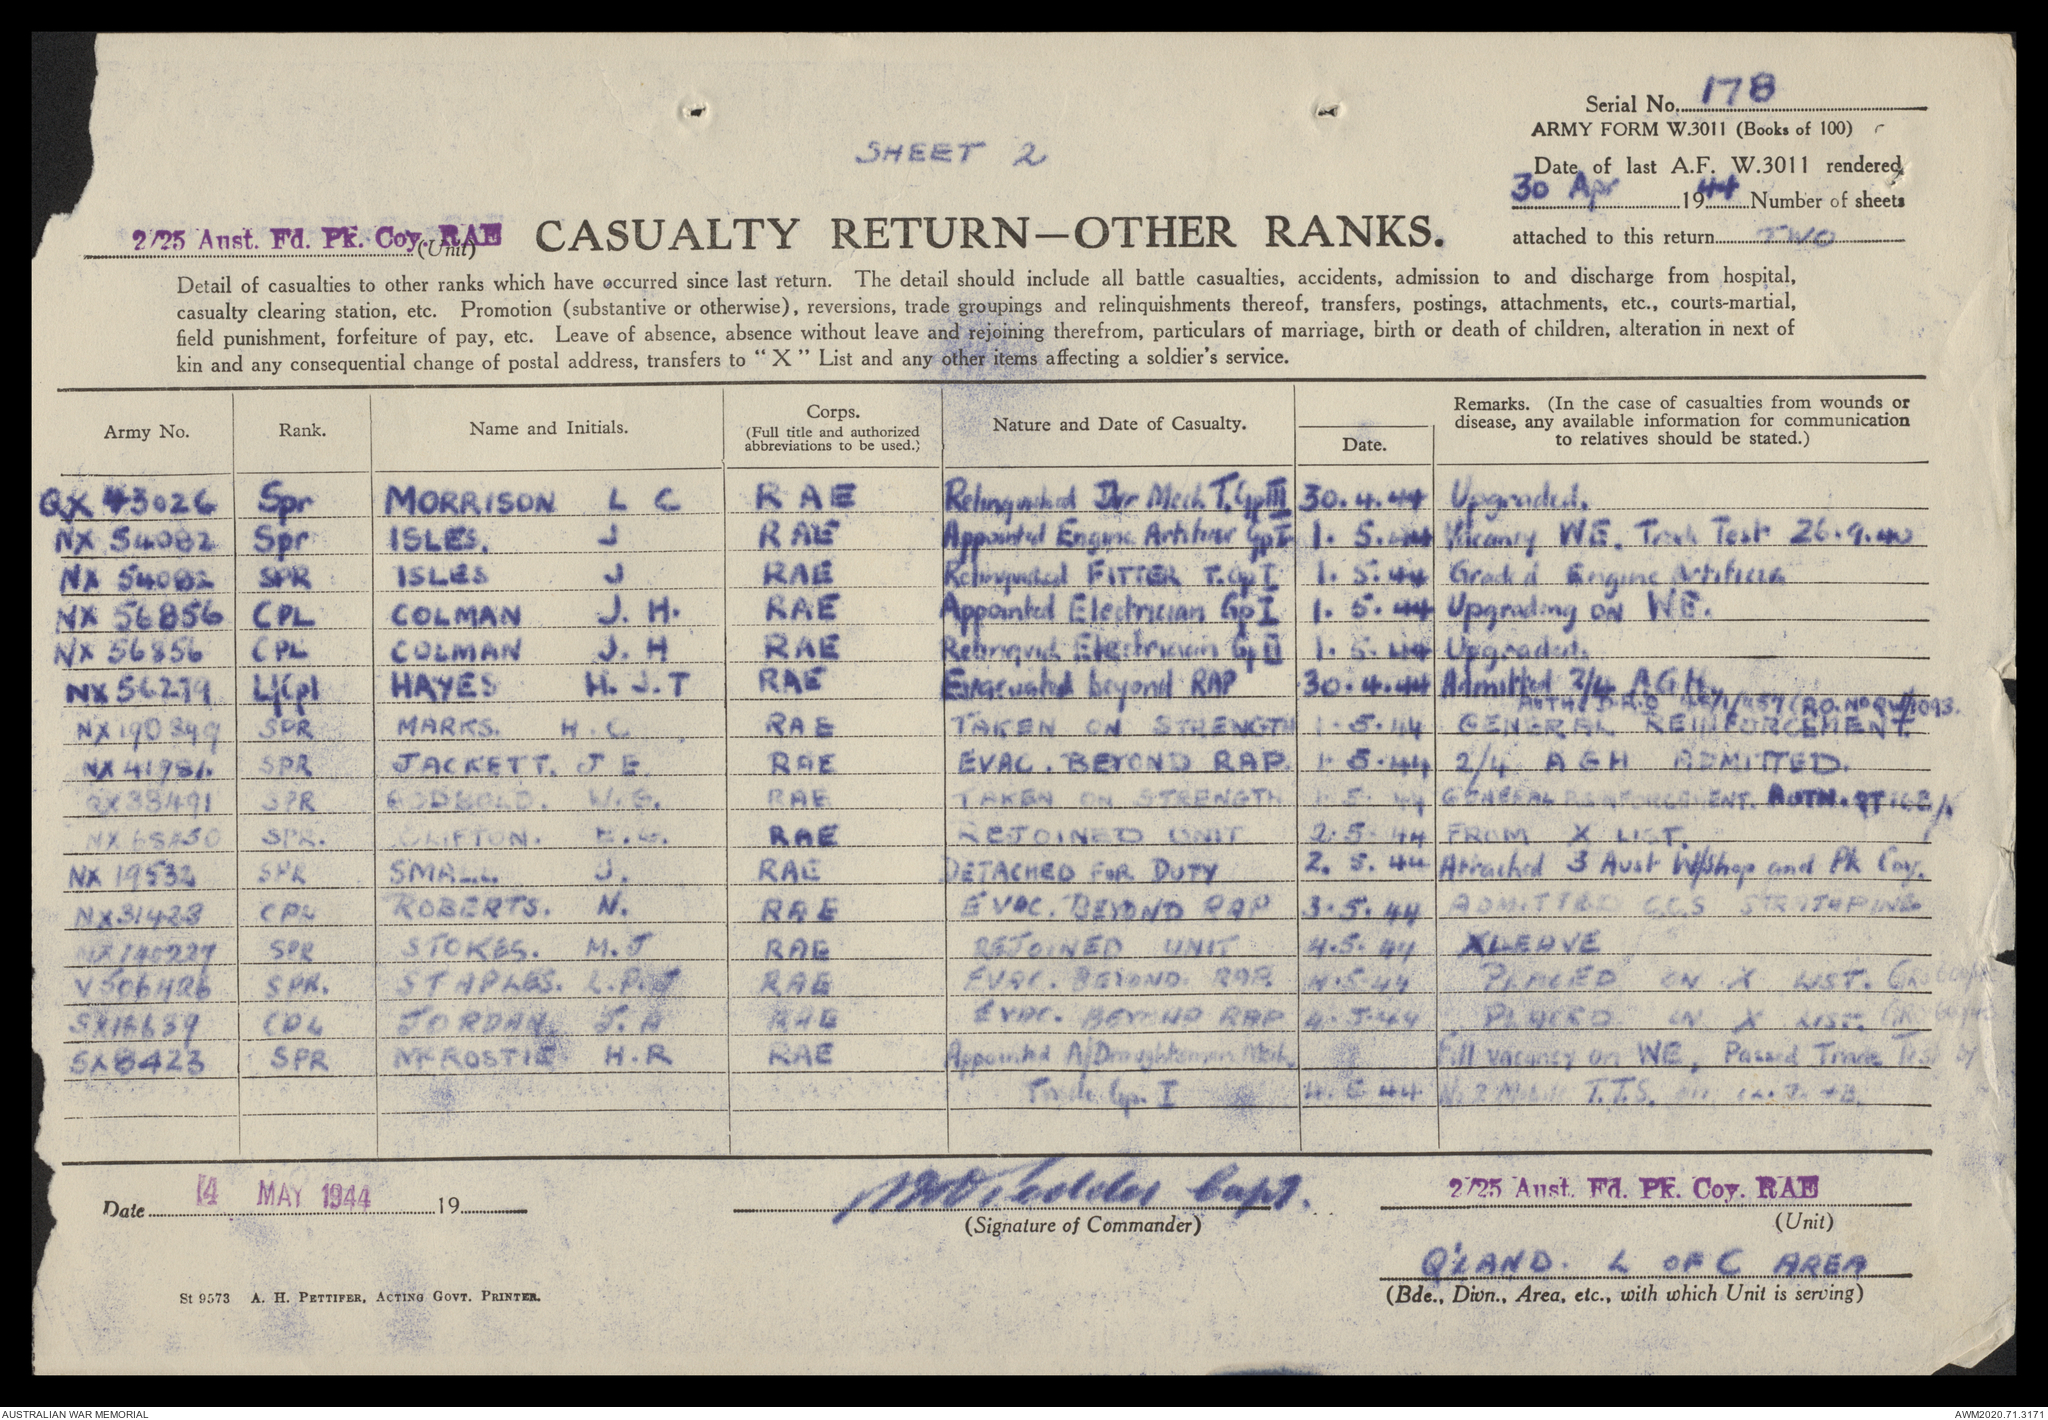 Serial No. 178
ARMY FORM W.3011 (Books of 100)
SHEET 2
Date of last A.F. W.3011 rendered
30 Apr 1944 Number of sheets
attached to this return TWO
2/25 Aust. Fd. Pk. Coy. RAE (Unit)
CASUALTY RETURN—OTHER RANKS.
Detail of casualties to other ranks which have occurred since last return. The detail should include all battle casualties, accidents, admission to and discharge from hospital,
casualty clearing station, etc. Promotion (substantive or otherwise), reversions, trade groupings and relinquishments thereof, transfers, postings, attachments, etc., courts-martial,
field punishment, forfeiture of pay, etc. Leave of absence, absence without leave and rejoining therefrom, particulars of marriage, birth or death of children, alteration in next of
kin and any consequential change of postal address, transfers to "X" List and any other items affecting a soldier's service.
Army No. Rank. Name and Initials. Corps. (Full title and authorized abbreviations to be used.) Nature and Date of Casualty. Date. Remarks. (In the case of casualties from wounds or disease, any available information for communication to relatives should be stated.)
QX 43026 Spr MORRISON L C RAE Relinquished Dvr Mech T.Gp III 30.4.44 Upgraded.
NX 54082 Spr ISLES. J RAE Appointed Engine Artificer Gp I 1.5.44 Vicancy WE. Trade Test 26.9.40
NX 54082 SPR ISLES J RAE Relinquished FITTER T.Gp I 1.5.44 Graded Engine Artificer
NX 56856 CPL COLMAN J.H. RAE Appointed Electrician Gp I 1.5.44 Upgrading on WE.
NX 56856 CPL COLMAN J.H RAE Relinquish Electrician Gp II 1.5.44 Upgraded.
NX 56279 L/Cpl HAYES H.J.T RAE Evacuated beyond RAP 30.4.44 Admitted 2/4 A.G.H.
NX190349 SPR MARKS. H.C. RAE TAKEN ON STRENGTH 1.5.44 GENERAL REINFORCEMENT.
NX41981 SPR JACKETT. J E. RAE EVAC. BEYOND RAP. 1.5.44 2/4 AGH ADMITTED.
QX38491 SPR GODBOLD. W.G. RAE TAKEN ON STRENGTH 1.5.44 GENERAL REINFORCEMENT. AUTH.
SPR. CLIFTON. E.G. RAE REJOINED UNIT 2.5.44 FROM X LIST.
NX 19532 SPR SMALL J. RAE DETACHED FOR DUTY 2.5.44 Attached 3 Aust W/Shop and Pk Coy.
NX31423 CPL ROBERTS. N. RAE EVAC. BEYOND RAP 3.5.44 ADMITTED CCS STRATHPINE
NX140227 SPR STOKES. M.J RAE REJOINED UNIT 4.5.44 XLEAVE
V506426 SPR. STAPLES. L.P.J RAE EVAC. BEYOND. RAP. 4.5.44 PLACED ON X LIST.
SX18639 CPL JORDAN. J.A RAE EVAC. BEYOND RAP 4.5.44 PLACED ON X LIST.
SX8423 SPR McROSTIE H.R RAE Appointed A/Draughtsman Mech. Fill vacancy on WE, Passed Trade Test by
Trade Gp. I 4.5.44 No 2 Mobile T.T.S.
Date 14 MAY 1944 19
Capt.
(Signature of Commander)
2/25 Aust. Fd. Pk. Coy. RAE
(Unit)
Q'LAND. L OF C AREA
(Bde., Divn., Area, etc., with which Unit is serving)
St 9573 A. H. PETTIFER, ACTING GOVT. PRINTER.
AUSTRALIAN WAR MEMORIAL
AWM2020.71.3171